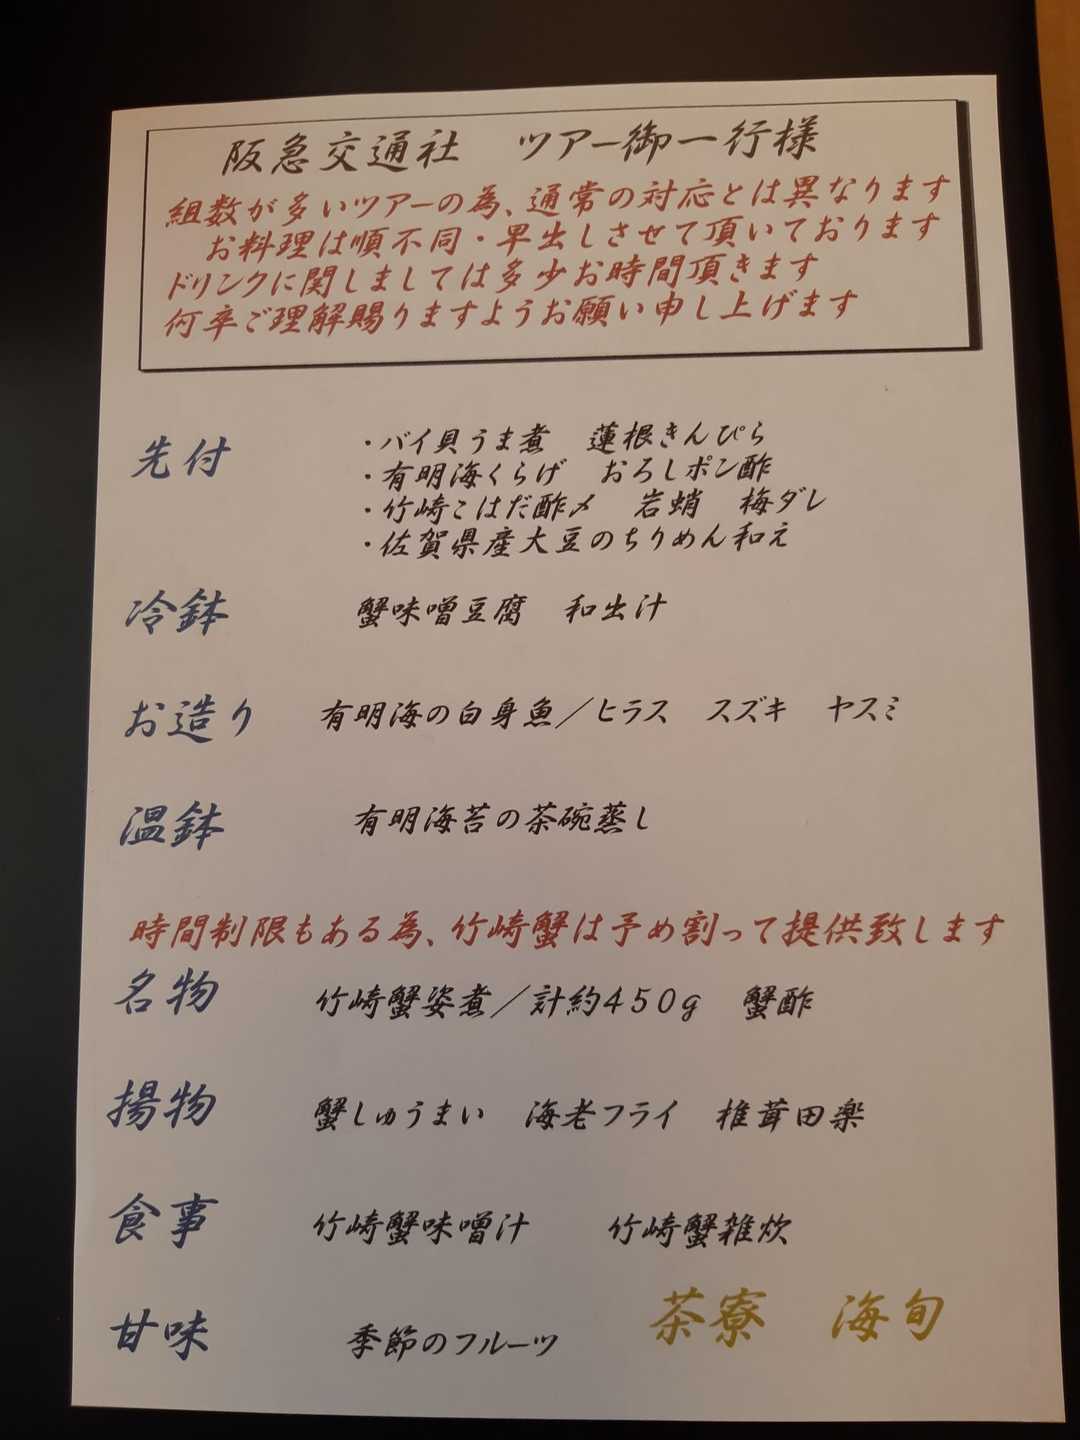 阪急交通社　ツアー御一行様
組数が多いツアーの為、通常の対応とは異なります
お料理は順不同・早出しさせて頂いております
ドリンクに関しましては多少お時間頂きます
何卒ご理解賜りますようお願い申し上げます
先付　・バイ貝うま煮　蓮根きんぴら
・有明海くらげ　おろしポン酢
・竹崎こはだ酢〆　岩蛸　梅ダレ
・佐賀県産大豆のちりめん和え
冷鉢　蟹味噌豆腐　和出汁
お造り　有明海の白身魚／ヒラス　スズキ　ヤスミ
温鉢　有明海苔の茶碗蒸し
時間制限もある為、竹崎蟹は予め割って提供致します
名物　竹崎蟹姿煮／計約450g　蟹酢
揚物　蟹しゅうまい　海老フライ　椎茸田楽
食事　竹崎蟹味噌汁　竹崎蟹雑炊
甘味　季節のフルーツ
茶寮　海旬